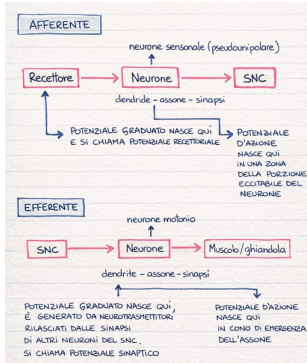 AFFERENTE
neurone sensoriale (pseudounipolare)
Recettore → Neurone → SNC
dendride - assone - sinapsi
POTENZIALE GRADUATO NASCE QUI
E SI CHIAMA POTENZIALE RECETTORIALE
POTENZIALE
D'AZIONE
NASCE QUI
IN UNA ZONA
DELLA PORZIONE
ECCITABILE DEL
NEURONE
EFFERENTE
neurone motonio
SNC → Neurone → Muscolo/ghiandola
dendrite - assone - sinapsi
POTENZIALE GRADUATO NASCE QUI,
É GENERATO DA NEUROTRASMETTITORI
RILASCIATI DALLE SINAPSI
DI ALTRI NEURONI DEL SNC.
SI CHIAMA POTENZIALE SINAPTICO
POTENZIALE D'AZIONE
NASCE QUI
IN CONO DI EMERGENZA
DELL'ASSONE